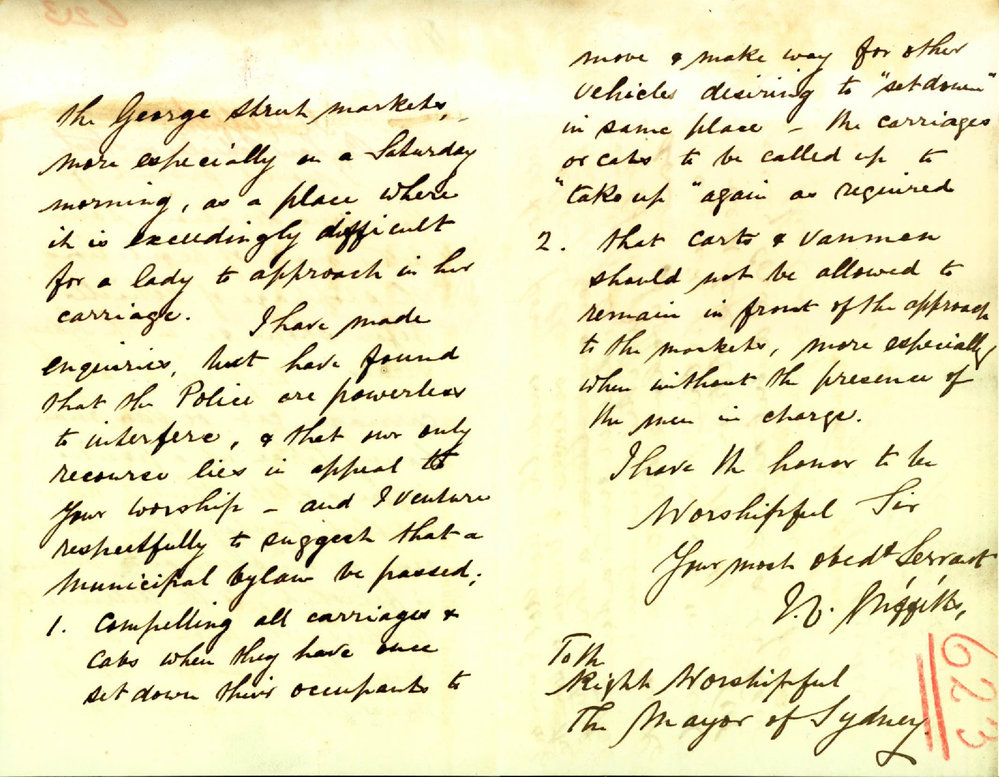 the George Street markets,
more especially on a Saturday
morning, as a place where
it is exceedingly difficult
for a lady to approach in her
carriage. I have made
enquiries, but have found
that the Police are powerless
to interfere, & that our only
recourse lies in appeal to
Your Worship – and I venture
respectfully to suggest that a
Municipal bylaw be passed;
1. Compelling all carriages &
cabs when they have once
set down their occupants to
move & make way for other
vehicles desiring to "set down"
in same place – the carriages
or cabs to be called up to
"take up" again as required
2. that carts & vanmen
should not be allowed to
remain in front of the approach
to the markets, more especially
when without the presence of
the men in charge.
I have the honor to be
Worshipful Sir
Your most obedt Servant
To the
Right Worshipful
The Mayor of Sydney.
623